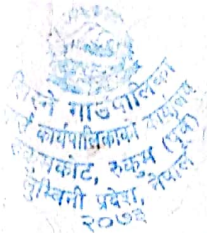 गाउँपालिका
कार्यपालिकाको कार्यालय
रुकुमकोट, रुकुम (पूर्व)
लुम्बिनी प्रदेश, नेपाल
२०७३